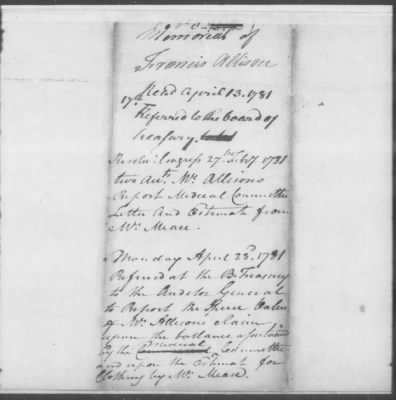 Memorial of
Francis Allison
Read April 13. 1781
17th
Referred to the board of
treasury.
Resolve Congress 27th Feby 1781
two Aut. Mr. Allisons
Report Medical Committee
Letter and Estimate from
Mr. Mease.
Monday April 23d. 1781
Referred at the B. Treasury
to the Auditor General
to Report the Specie Value
of Mr. Allisons Claim
upon the ballance
by the Medical Committee
and upon the Estimate for
Clothing by Mr. Mease.